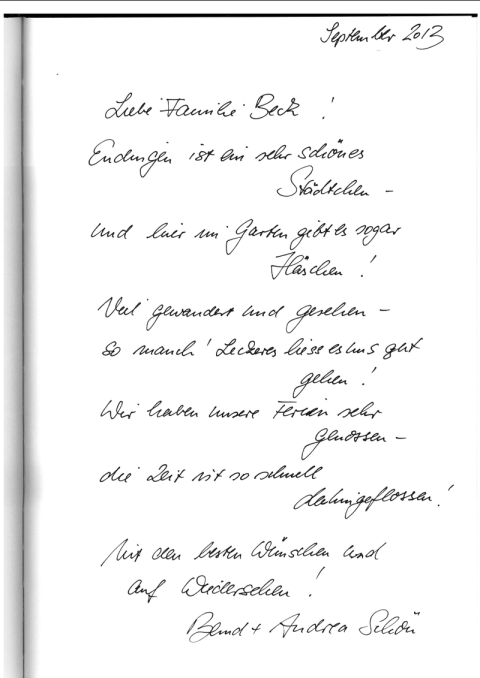 September 2013
Liebe Familie Beck !
Endingen ist ein sehr schönes
Städtchen –
und hier im Garten gibt es sogar
Häschen !
Viel gewandert und gesehen –
so manch' Leckeres liess es uns gut
gehen !
Wir haben unsere Ferien sehr
genossen –
die Zeit ist so schnell
dahingeflossen !
Mit den besten Wünschen und
auf Wiedersehen !
Bernd + Andrea Schön